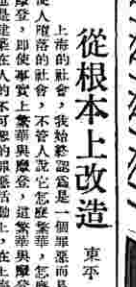 從根本上改造
東平
上海的社會，我始終認爲是一個罪惡而且
使人墮落的社會，不管人說它怎麽繁華，怎麽
摩登，即使事實上繁華與摩登，這繁華與摩登
也是建築在人的不可恕的罪惡活動上，在上海